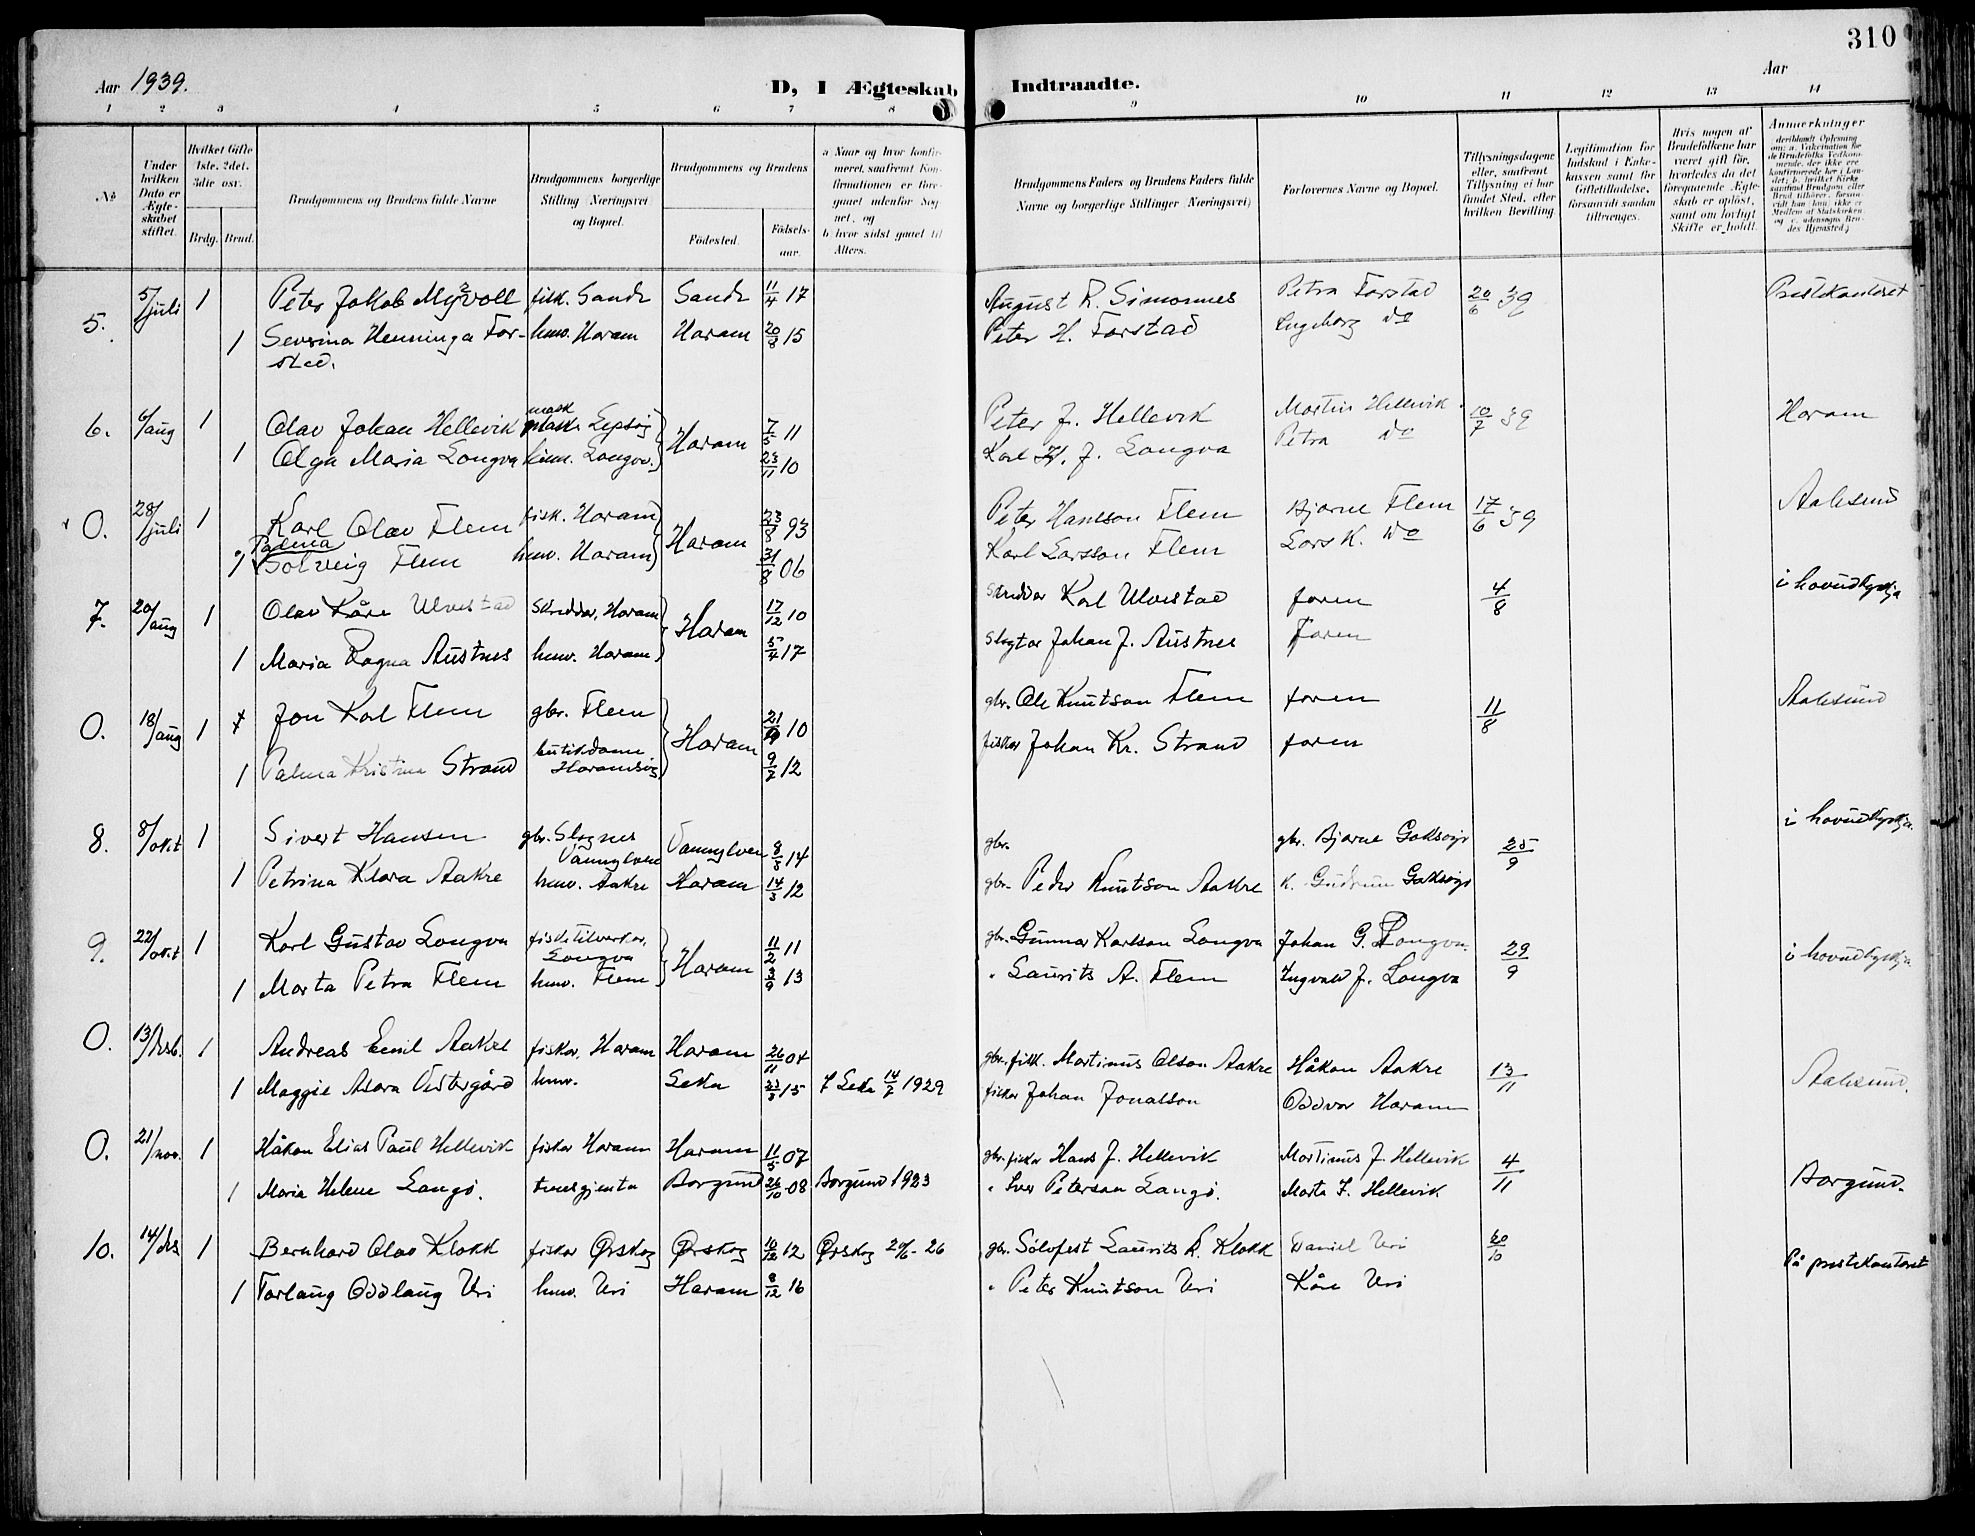 310
Aar 1939.
D, 1 Ægteskab Indtraadte.
Aar
1 2 3 4 5 6 7 8 9 10 11 12 13 14
No
Under hvilken Dato er Ægteskabet stiftet.
Hvilket Gifte 1ste. 2det. 3die osv.
Brdg. Brud.
Brudgommens og Brudens fulde Navne
Brudgommens borgerlige Stilling Næringsvei og Bopæl.
Brudgommens og Brudens
Födested.
Födselsaar.
a Naar og hvor konfirmeret, saafremt Konfirmationen er foregaaet udenfor Sognet, og
b hvor sidst gaaet til Alters.
Brudgommens Faders og Brudens Faders fulde Navne og borgerlige Stillinger Næringsvei)
Forlovernes Navne og Bopæl.
Tillysningsdagene eller, saafremt Tillysning ei har fundet Sted, efter hvilken Bevilling.
Legitimation for Indskud i Enkekassen samt for Giftetilladelse, forsaavidt saadan tiltrænges.
Hvis nogen af Brudefolkene har været gift för, hvorledes da det foregaaende Ægteskab er oplöst, samt om lovligt Skifte er holdt.
Anmerkninger
5. 5/juli 1 Peter Jakob Myrvoll fisk. Sande Sande 11/4 17 August R. Simonnes Petra Farstad 20/6 39 Prestekontoret
1 Severina Henninga Farstad. hmv. Haram Haram 20/8 15 Peter H. Farstad Ingeborg do
6. 6/aug 1 Olav Johan Hellevik mask Lepsøy Haram 7/5 11 Peter J. Hellevik Martin Hellevik 10/7 39 Haram
1 Olga Maria Longva hmv. Longva. 23/11 10 Karl H. J. Longva Petra do
O. 28/juli 1 Karl Olav Flem fisk. Haram Haram 23/8 93 Peter Hansson Flem Bjarne Flem 17/6 39 Aalesund
1 Palma Solveig Flem hmv. Haram 31/8 06 Karl Larsson Flem Lars K. do
7. 20/aug 1 Olav Kåre Ulvestad Skreddar, Haram Haram 17/12 10 Skreddar Karl Ulvestad faren 4/8 i hovudkyrkja
1 Maria Ragna Austnes hmv. Haram 5/4 17 Slagtar Johan J. Austnes Faren
O. 18/aug 1 Jon Karl Flem gbr. Flem Haram 21/ 10 gbr. Ole Knutson Flem faren 11/8 Aalesund
1 Palma Kristine Strand butikdame Haramsøy 9/7 12 fiskar Johan Kr. Strand faren
8. 8/okt 1 Sivert Hansen gbr. Slagnes Vannylven Vannylven 8/3 14 gbr. gbr. Bjarne Gaksøyr 25/9 i hovudkyrkja.
1 Petrina Klara Aakre hmv. Aakre Haram 14/3 12 gbr. Peder Knutson Aakre K. Gudrun Gaksøyr
9. 22/okt 1 Karl Gustav Longva fisketilverkar, Longva Haram 11/2 11 gbr. Gunnar Karlson Longva Johan G. Longva 29/9 i hovudkyrkja
1 Marta Petra Flem hmv. Flem 3/9 13 " Laurits A. Flem Ingvald J. Longva
O. 13/desb. 1 Andreas Emil Aakre fiskar, Haram Haram 26/11 04 gbr. fisk. Martinus Olson Aakre Håkon Aakre 13/11 Aalesund.
1 Maggie Asora Vestergård hmv. Leka 23/3 15 I Leka 14/7 1929 fiskar Johan Jonasson Oddvar Haram
O. 21/nov. 1 Håkon Elias Paul Hellevik fiskar Haram Haram 11/5 07 gbr. fiskar Hans J. Hellevik Martinus J. Hellevik 4/11 Borgund.
1 Maria Helene Langø. tenesgjenta Borgund 26/10 08 Borgund 1923 " Iver Peterson Langø. Marta J. Hellevik
10. 14/des 1 Bernhard Olav Klokk fiskar Ørskog Ørskog 10/12 12 Ørskog 20/6-26 gbr. Sølvfest Laurits K. Klokk Daniel Uri 20/10 På prestekontoret
1 Torlaug Oddlaug Uri hmv. Uri Haram 8/12 16 " Peter Knutson Uri Kåre Uri